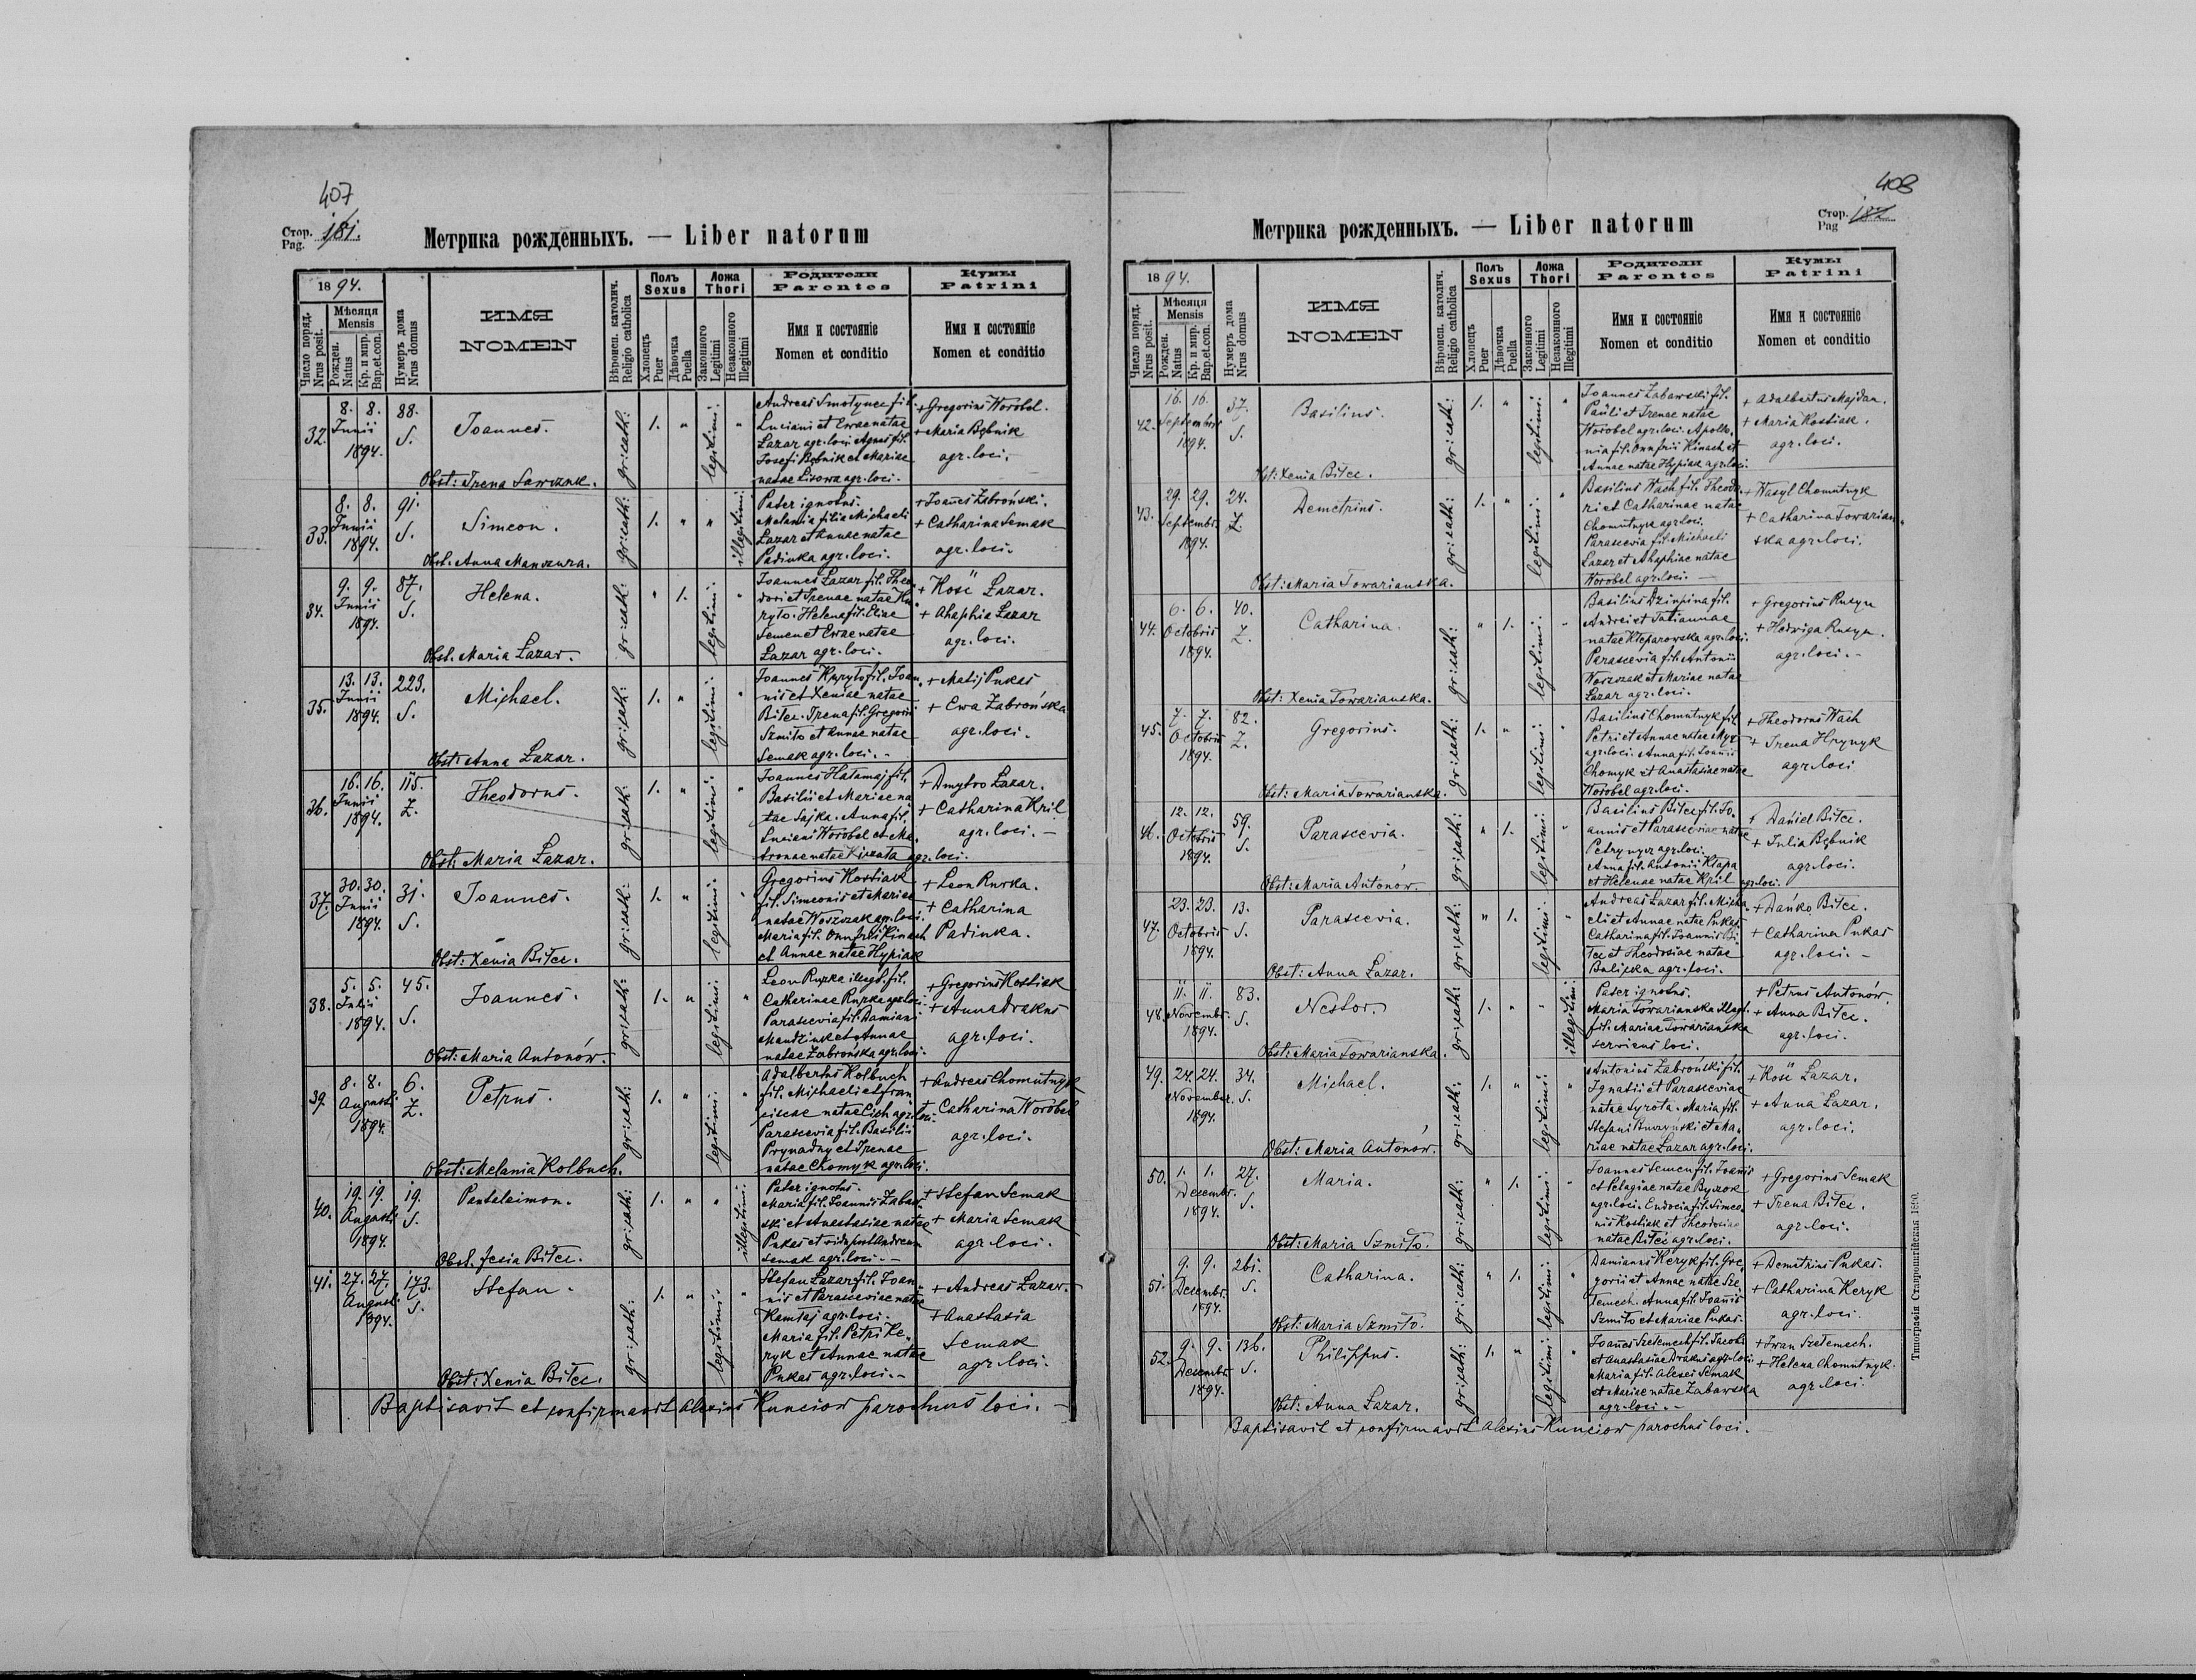 407
Стор. 181.
Pag.
Метрика рожденныхъ. — Liber natorum
1894.
Число поряд.
Nrus posit.
Мѣсяця
Mensis
Рожден.
Natus
Кр. и мир.
Bap.et.con.
Нумеръ дома
Nrus domus
ИМЯ
NOMEN
Вѣроисп. католич.
Religio catholica
Полъ
Sexus
Хлопецъ
Puer
Дѣвочка
Puella
Ложа
Thori
Законного
Legitimi
Незаконного
Illegitimi
Родители
Parentes
Имя и состояніе
Nomen et conditio
Кумы
Patrini
Имя и состояніе
Nomen et conditio
32. 8. 8. Junii 1894. 88. S.
Joannes.
Obst: Irena Sawczuk.
gr:cath: 1. " legitimi: "
Andreas Smotynec fil.
Luciani et Ewae natae
Lazar agr. loci. Agnes fil.
Josefi Bębnik et Mariae
natae Lisowa agr. loci.
+ Gregorius Worobel.
+ Maria Bębnik
agr. loci.
33. 8. 8. Junii 1894. 91. S.
Simeon.
Obst: Anna Manszura.
gr:cath: 1. " " illegitimi:
Pater ignotus.
Melania filia Michaeli
Lazar et Annae natae
Padinka agr. loci.
+ Joañes Zabroński.
+ Catharina Semak
agr. loci.
34. 9. 9. Junii 1894. 87. S.
Helena.
Obst. Maria Łazar.
gr:cath: " 1. legitimi: "
Joannes Łazar fil. Theo-
dori et Irenae natae Ku
ryło. Helena fil. Eliae
Semen et Ewae natae
Łazar agr. loci.
+ Kość Łazar.
+ Ahaphia Łazar
agr. loci.
35. 13. 13. Junii 1894. 223. S.
Michael.
Obst: Anna Łazar.
gr:cath: 1. " legitimi: "
Joannes Kuryło fil. Joan-
nis et Xeniae natae
Bilec. Irena fil. Gregorii
Szmiło et Annae natae
Semak agr. loci. -
+ Matij Pukas
+ Ewa Zabrońska
agr. loci.
36. 16. 16. Junii 1894. 115. Z.
Theodorus.
Obst: Maria Łazar.
gr:cath: 1. " legitimi: "
Joannes Hałamaj fil.
Basilii et Mariae na
tae Sajka. Anna fil.
Luciani Worobel et Ma-
tronae natae agr. loci.
+ Dmytro Łazar.
+ Catharina Kril
agr. loci. -
37. 30. 30. Junii 1894. 31. S.
Joannes.
Obst: Xenia Bilec.
gr:cath: 1. " legitimi: "
Gregorius Kostiak
fil. Simeonis et Mariae
natae Woszczak agr. loci.
Maria fil. Onufrii Kinach
et Annae natae Hypiak
+ Leon Ruzka.
+ Catharina
Padinka.
38. 5. 5. Julii 1894. 45. S.
Joannes.
Obst: Maria Antonów.
gr:cath: 1. " legitimi: "
Leon Ruzka illegt. fil.
Catharinae Ruzka agr. loci.
Parascevia fil. Damiani
Mandziuk et Annae
natae Zabrońska agr. loci.
+ Gregorius Kostiak
+ Anna Drakus
agr. loci.
39. 8. 8. Augusti 1894. 6. Z.
Petrus.
Obst: Melania Kolbuch.
gr:cath: 1. " legitimi: "
Adalbertus Kolbuch
fil. Michaeli et Fran
ciscae natae Cich agr. loci.
Parascevia fil. Basilii
Prynadny et Irenae
natae Chomyk agr. loci.
+ Andreas Chomutnyk
+ Catharina Worobel
agr. loci.
40. 19. 19. Augusti 1894. 19. S.
Pantaleimon.
Obst. Jesia Bilec.
gr:cath: 1. " " illegitimi:
Pater ignotus.
Maria fil. Joannis Zabaw-
ski et Anastasiae natae
Pukas et vidu post Andream
Semak agr. loci. -
+ Stefan Semak
+ Maria Semak
agr. loci.
41. 27. 27. Augusti 1894. 173. S.
Stefan.
Obst: Xenia Bilec.
gr:cath: 1. " legitimi: "
Stefan Łazar fil. Joan-
nis et Parasceviae natae
Kamtaj agr. loci.
Maria fil. Petri Ke-
ryk et Annae natae
Pukas agr. loci. -
+ Andreas Łazar.
+ Anastasia
Semak
agr. loci.
Baptisavit et confirmavit Alexius Kunciow parochus loci. -
408
Стор. 182
Pag
Метрика рожденныхъ. — Liber natorum
1894.
Число поряд.
Nrus posit.
Мѣсяця
Mensis
Рожден.
Natus
Кр. и мир.
Bap.et.con.
Нумеръ дома
Nrus domus
ИМЯ
NOMEN
Вѣроисп. католич.
Religio catholica
Полъ
Sexus
Хлопецъ
Puer
Дѣвочка
Puella
Ложа
Thori
Законного
Legitimi
Незаконного
Illegitimi
Родители
Parentes
Имя и состояніе
Nomen et conditio
Кумы
Patrini
Имя и состояніе
Nomen et conditio
42. 16. 16. Septembris 1894. 37. S.
Basilius.
Obst: Xenia Bilec.
gr:cath: 1. " legitimi: "
Joannes Zabawski fil.
Pauli et Irenae natae
Worobel agr. loci. Apollo-
nia fil. Onufrii Kinach et
Annae natae Hypiak agr. loci.
+ Adalbertus Majdan.
+ Maria Kostiak.
agr. loci.
43. 29. 29. Septembr. 1894. 24. Z.
Demetrius.
Obst: Maria Towarianska.
gr:cath: 1. " legitimi: "
Basilius Wach fil. Theodo-
ri et Catharinae natae
Chomutnyk agr. loci.
Parascevia fil. Michaeli
Lazar et Ahaphiae natae
Worobel agr. loci. -
+ Wasyl Chomutnyk
+ Catharina Towarian-
ska agr. loci.
44. 6. 6. Octobris 1894. 40. Z.
Catharina.
Obst: Xenia Towarianska.
gr:cath: " 1. legitimi: "
Basilius Dziupina fil.
Andrei et Tatiannae
natae Kleparowska agr. loci.
Parascevia fil. Antonii
Woszczak et Mariae natae
Lazar agr. loci.
+ Gregorius Rusyn
+ Hedwiga Rusyn.
agr. loci. -
45. 7. 7. Octobris 1894. 82. Z.
Gregorius.
Obst: Maria Towarianska.
gr:cath: 1. " legitimi: "
Basilius Chomutnyk fil.
Petri et Annae natae
agr. loci. Anna fil. Joannis
Chomyk et Anastasiae natae
Worobel agr. loci.
+ Theodorus Wach
+ Irena Hrynyk
agr. loci
46. 12. 12. Octobris 1894. 59. S.
Parascevia.
Obst: Maria Antonów.
gr:cath: " 1. legitimi: "
Basilius Bilec fil. Jo-
annis et Parasceviae natae
Petrynyn agr. loci.
Anna fil. Antonii Kłapa
et Helenae natae Kril agr. loci.
+ Daniel Bilec.
+ Julia Bębnik
agr. loci.
47. 23. 23. Octobris 1894. 13. S.
Parascevia.
Obst: Anna Łazar.
gr:cath: " 1. legitimi: "
Andreas Łazar fil. Micha-
eli et Annae natae Pukas.
Catharina fil. Joannis Bi-
lec et Theodosiae natae
Balicka agr. loci.
+ Dańko Bilec.
+ Catharina Pukas
agr. loci. -
48. 11. 11. Novembr. 1894. 83. S.
Nestor.
Obst: Maria Towarianska.
gr:cath: 1. " " illegitimi:
Pater ignotus.
Maria Towarianska illegt.
fil. Mariae Towarianska
serviens loci.
+ Petrus Antonów.
+ Anna Bilec.
agr. loci.
49. 24. 24. November. 1894. 34. S.
Michael.
Obst: Maria Antonów.
gr:cath: 1. " legitimi: "
Antonius Zabroński fil.
Ignatii et Parasceviae
natae Syrota. Maria fil.
Stefani et Ma-
riae natae Łazar agr. loci.
+ Kość Łazar.
+ Anna Łazar.
agr. loci.
50. 1. 1. Decembr. 1894. 27. S.
Maria.
Obst: Maria Szmiło.
gr:cath: " 1. legitimi: "
Joannes Semen fil. Joañis
et Pelagiae natae Byczok
agr. loci. Eudocia fil. Simeo-
nis Kostiak et Theodosiae
natae Bilec agr. loci.
+ Gregorius Semak
+ Irena Bilec.
agr. loci.
51. 9. 9. Decembr. 1894. 261. S.
Catharina.
Obst: Maria Szmiło.
gr:cath: " 1. legitimi: "
Damianus Keryk fil. Gre-
gorii et Annae natae Sze-
lemech. Anna fil. Joañis
Szmiło et Mariae Pukas.
+ Demetrius Pukas.
+ Catharina Keryk
agr. loci.
52. 9. 9. Decembr. 1894. 136. S.
Philippus.
Obst: Anna Łazar.
gr:cath: 1. " legitimi: "
Joañes Szelemech fil. Jacobi
et Anastasiae Drakus agr. loci
Maria fil. Alexei Semak
et Mariae natae Zabawska
agr. loci. -
+ Iwan Szelemech.
+ Helena Chomutnyk.
agr. loci.
Baptisavit et confirmavit Alexius Kunciow parochus loci.
Типографія Ставропигійская 1890.